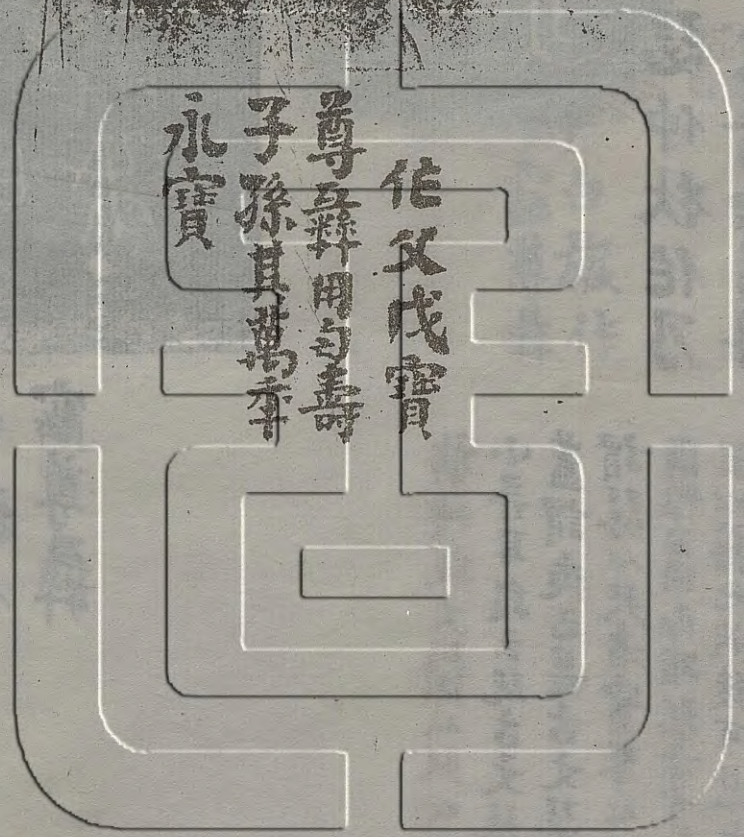 作父戊寶
尊彝用匄壽
子孫其萬年
永寶